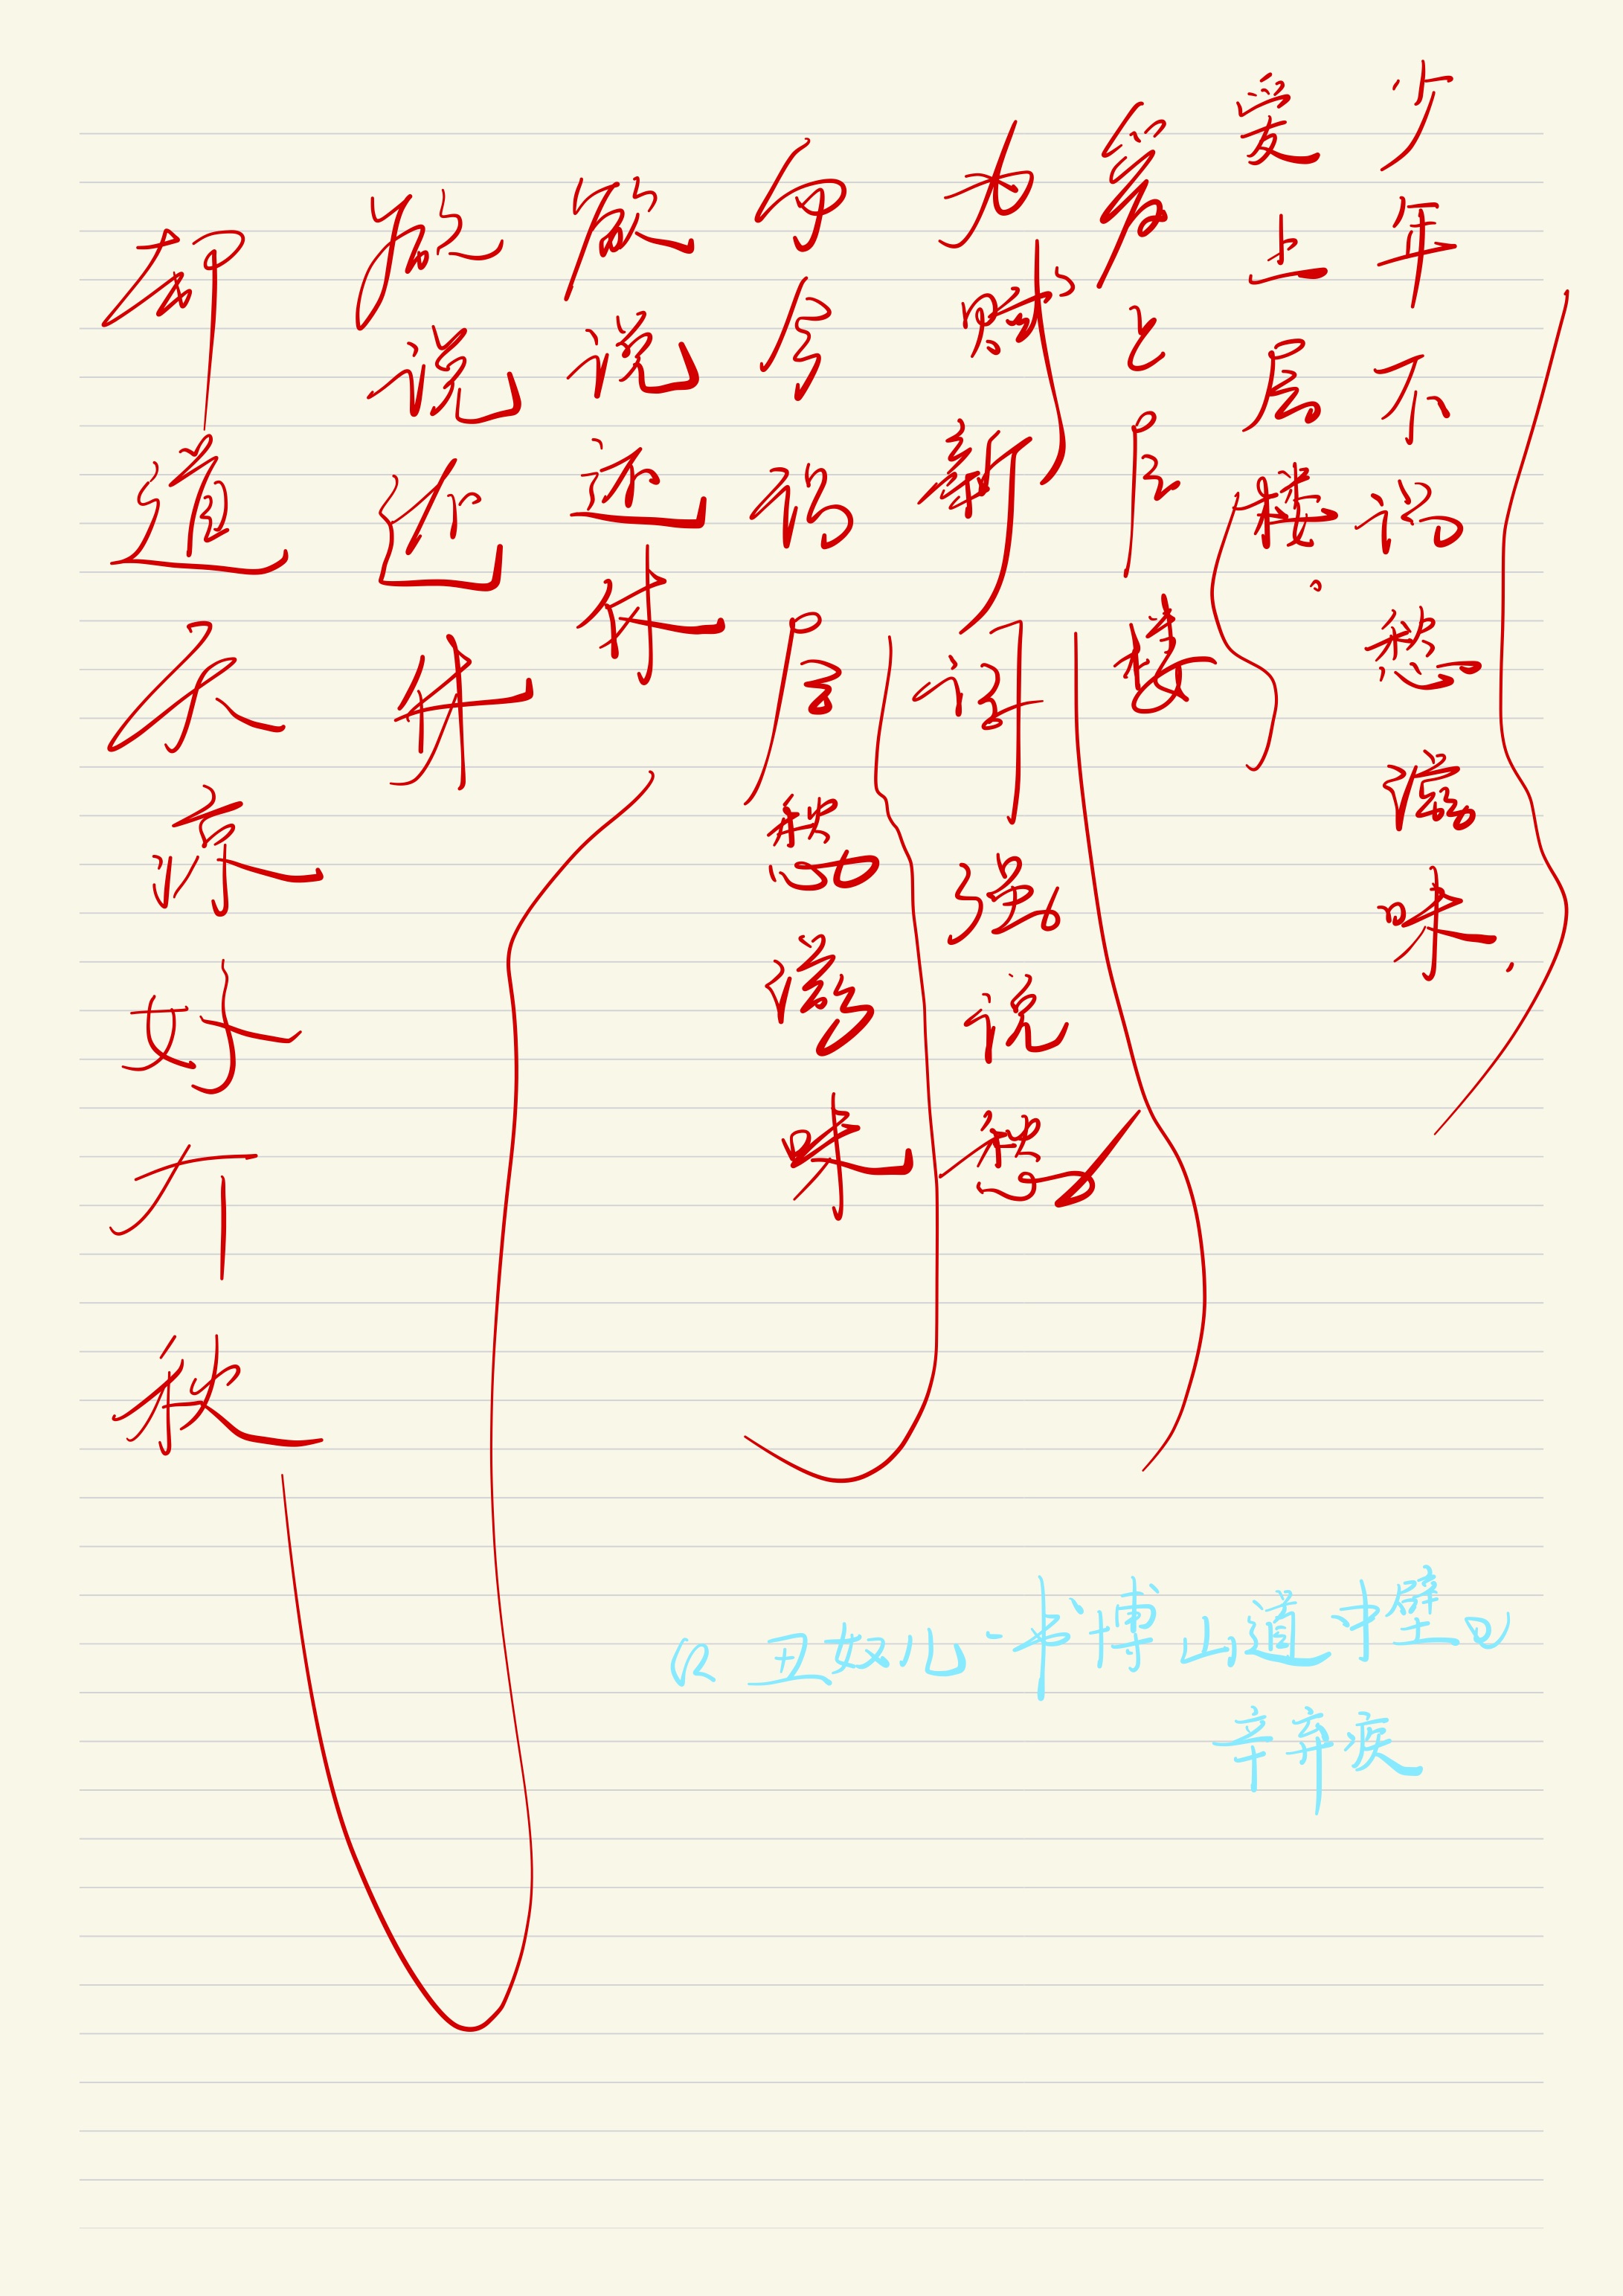 少年不识愁滋味,
爱上层楼。
爱上层楼
为赋新词强说愁
而今识尽愁滋味
欲说还休
欲说还休
却道天凉好个秋
《丑奴儿·书博山道中壁》
辛弃疾